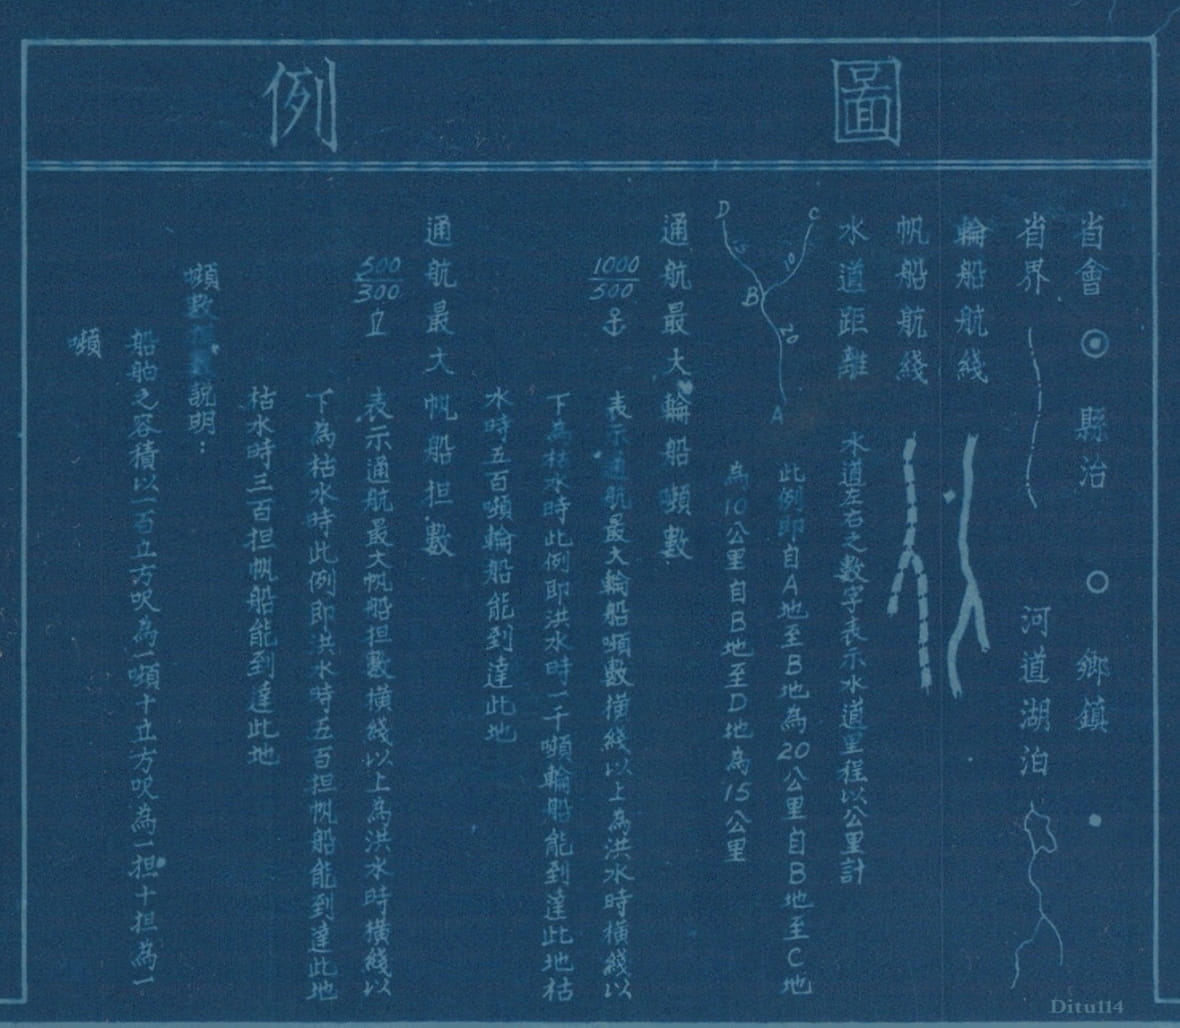 圖例
省會 縣治 鄉鎮
省界 河道湖泊
輪船航綫
帆船航綫
水道距離 水道左右之數字表示水道里程以公里計
C 10 A 20 B D
此例即自A地至B地為20公里自B地至C地
為10公里自B地至D地為15公里
通航最大輪船噸數
1000
500
表示通航最大輪船噸數橫綫以上為洪水時橫綫以
下為枯水時此例即洪水時一千噸輪船能到達此地枯
水時五百噸輪船能到達此地
通航最大帆船担數
500
300
表示通航最大帆船担數橫綫以上為洪水時橫綫以
下為枯水時此例即洪水時五百担帆船能到達此地
枯水時三百担帆船能到達此地
噸數說明：
船舶之容積以一百立方呎為一噸十立方呎為一担十担為一
噸
Ditu114